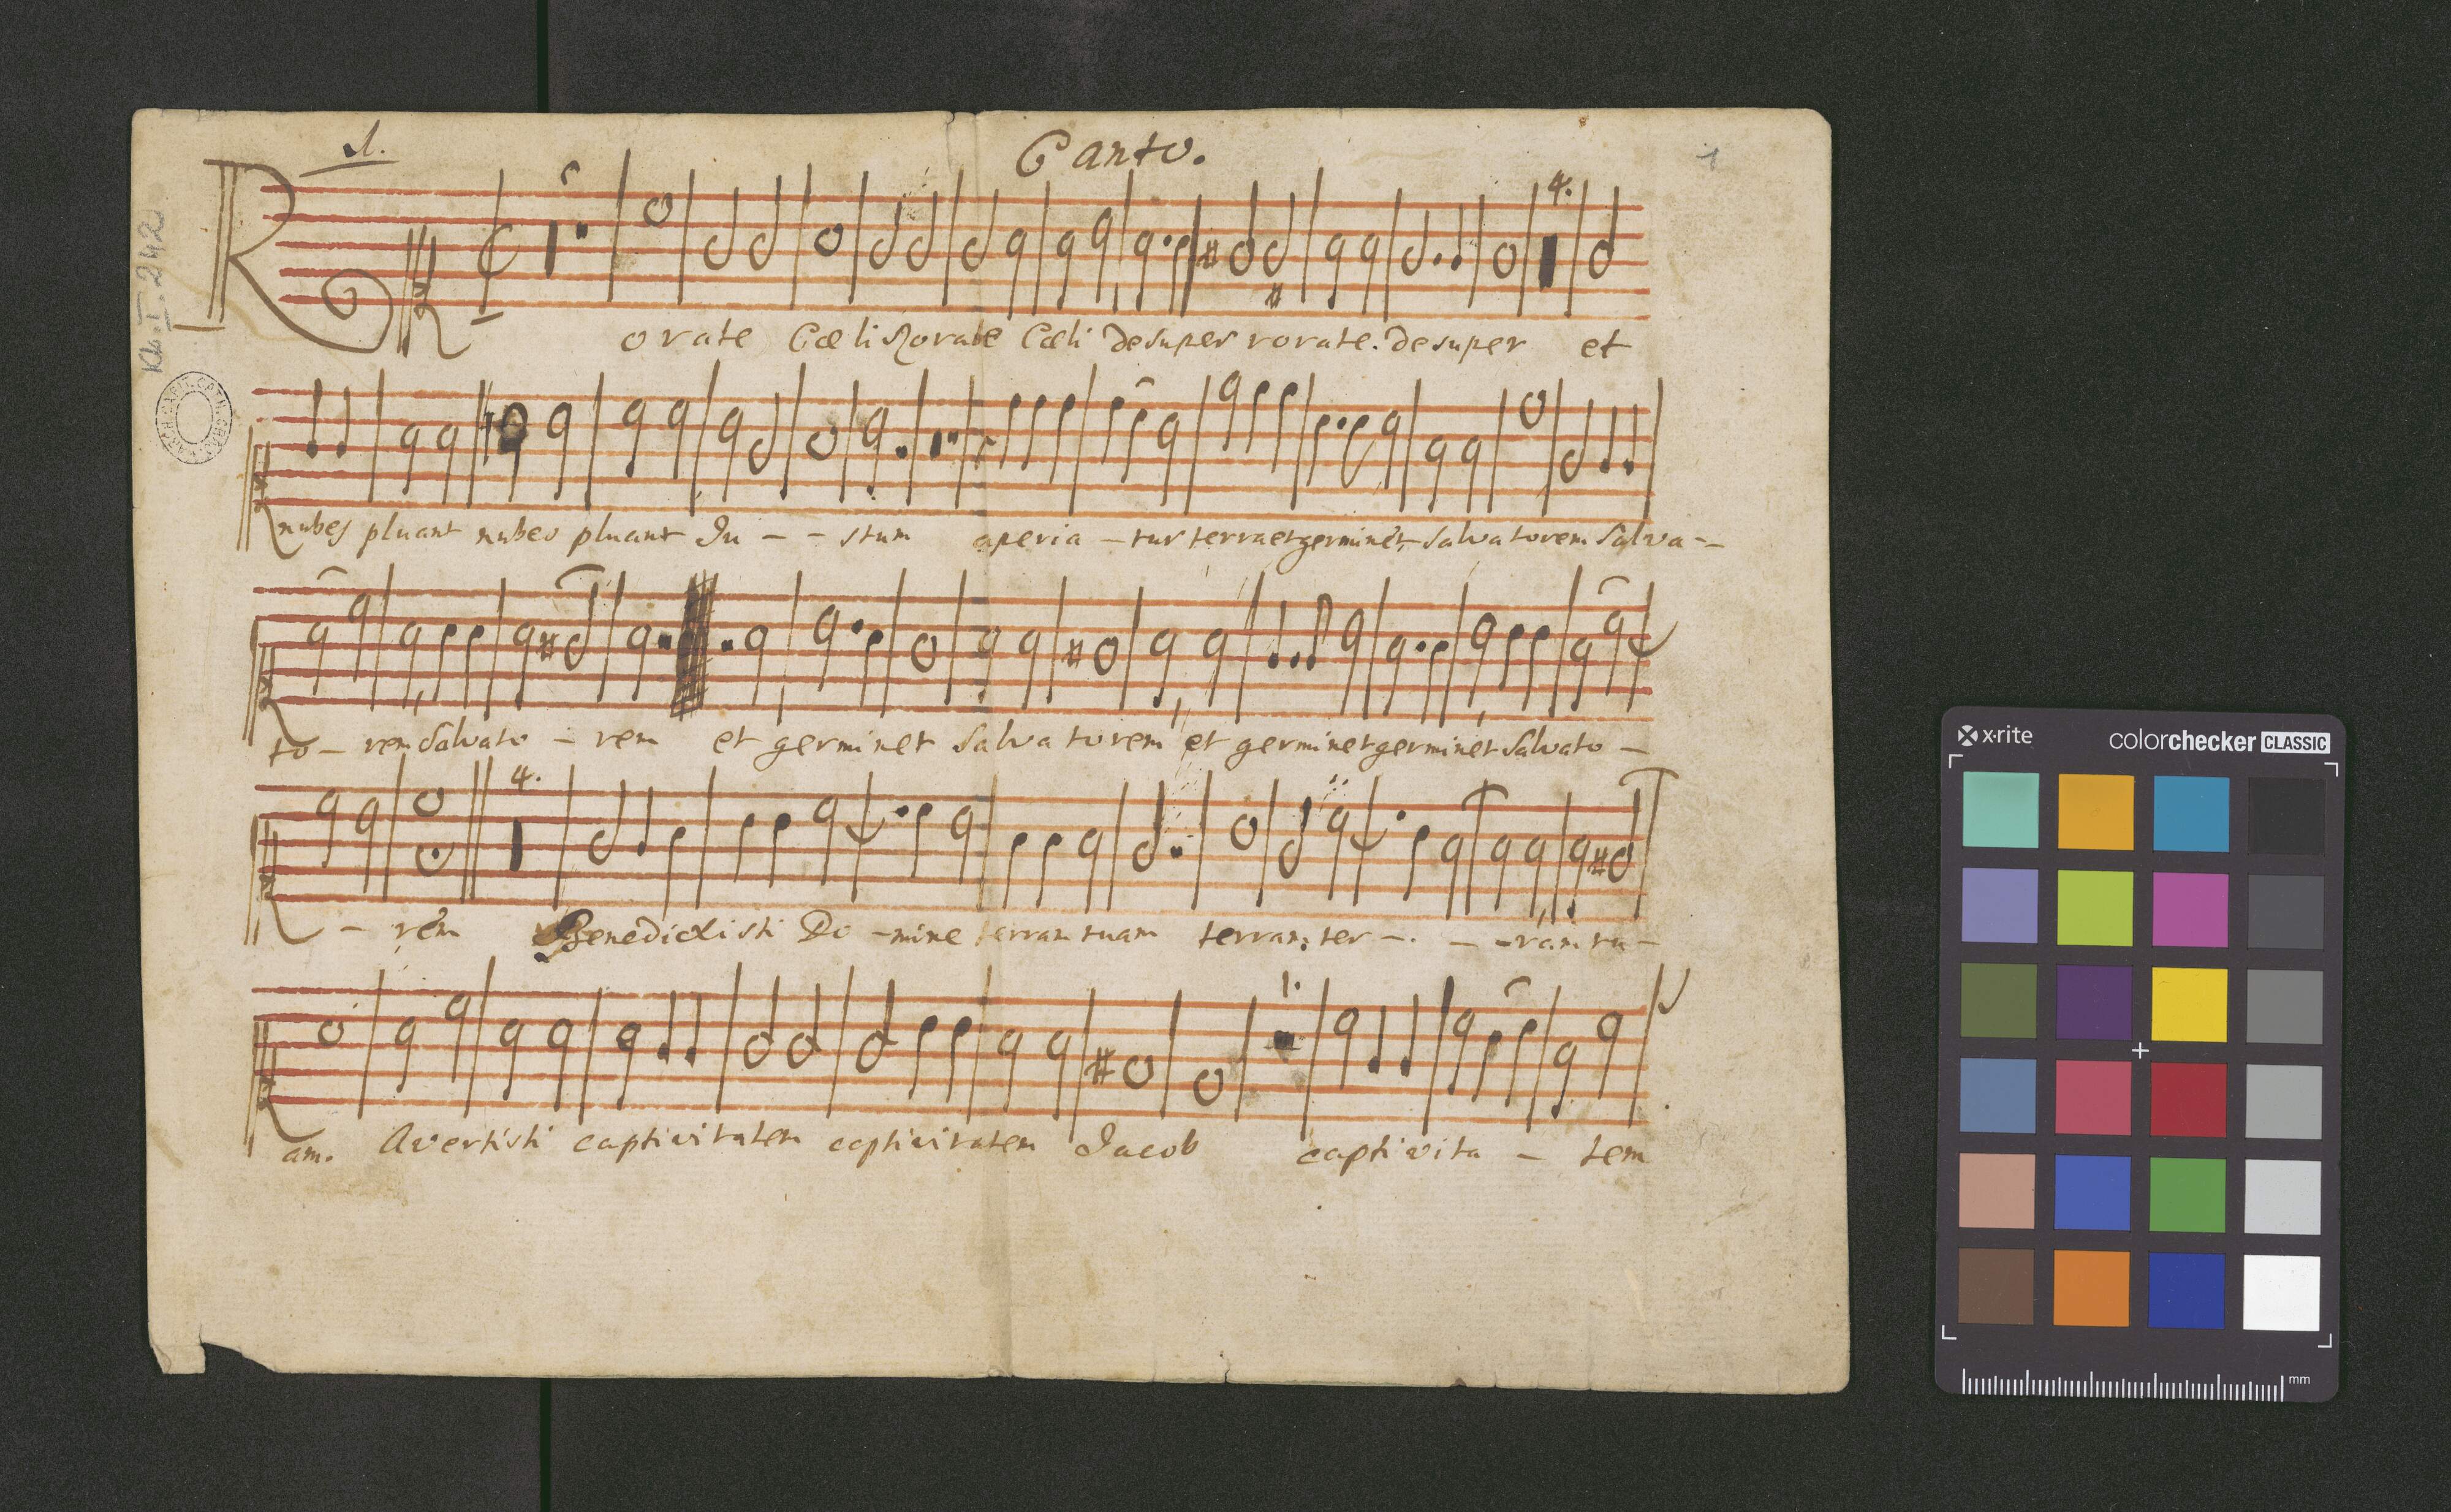 1.
Canto.
1
Kk. I. 242
4.
Rorate Cæli Rorate Cæli desuper rorate. desuper et
nubes pluant nubes pluant Ju - - stum aperia - tur terra et germinet salvatorem Salva - -
to - rem Salvato - rem et germinet Salvatorem et germinet germinet Salvato -
4.
- rem Benedixisti Do - mine terram tuam terram ter - - - ram tu -
1.
am. Avertisti captivitatem captivitatem Jacob captivita - tem
x·rite
colorchecker CLASSIC
mm